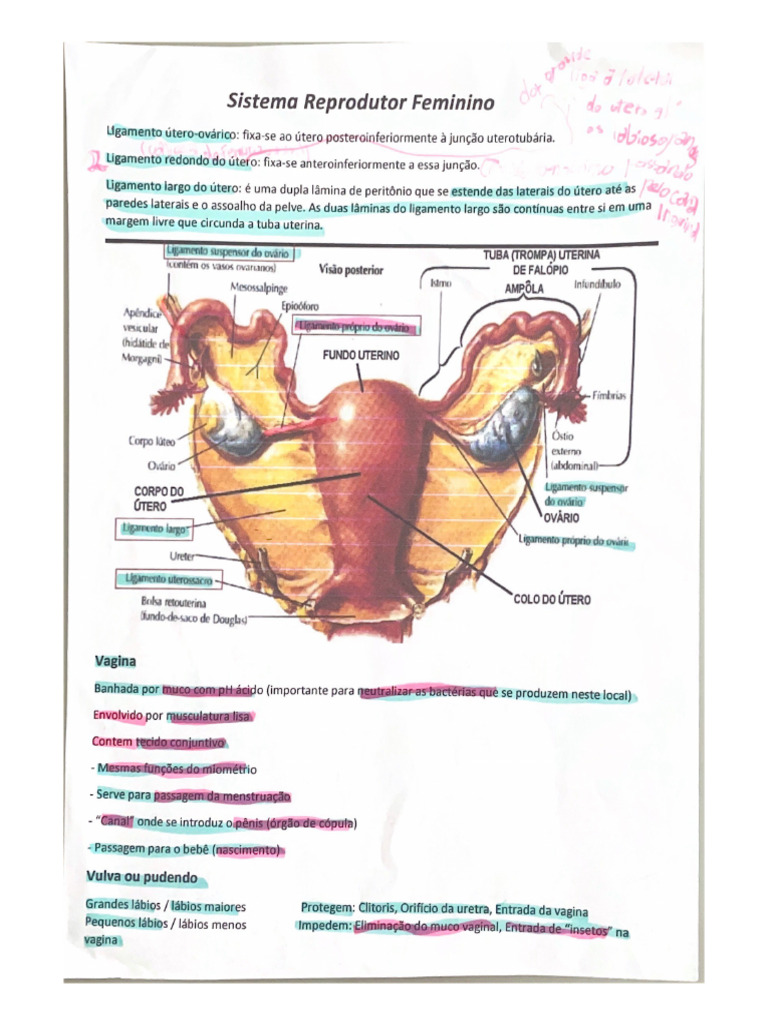 Sistema Reprodutor Feminino
Ligamento útero-ovárico: fixa-se ao útero posteroinferiormente à junção uterotubária.
Ligamento redondo do útero: fixa-se anteroinferiormente a essa junção.
Ligamento largo do útero: é uma dupla lâmina de peritônio que se estende das laterais do útero até as
paredes laterais e o assoalho da pelve. As duas lâminas do ligamento largo são contínuas entre si em uma
margem livre que circunda a tuba uterina.
do útero
os
Ligamento suspensor do ovário
(contém os vasos ovarianos)
Visão posterior
TUBA (TROMPA) UTERINA
DE FALÓPIO
Istmo
AMPÔLA
Infundíbulo
Mesossalpinge
Epioóforo
Apêndice
vesicular
(hidátide de
Morgagni)
Ligamento próprio do ovário
FUNDO UTERINO
Fímbrias
Corpo lúteo
Ovário
Óstio
externo
(abdominal)
CORPO DO
ÚTERO
Ligamento suspensor
do ovário
OVÁRIO
Ligamento largo
Ligamento próprio do ovário
Ureter
Ligamento uterossacro
Bolsa retouterina
(fundo-de-saco de Douglas)
COLO DO ÚTERO
Vagina
Banhada por muco com pH ácido (importante para neutralizar as bactérias que se produzem neste local)
Envolvido por musculatura lisa
Contem tecido conjuntivo
- Mesmas funções do miométrio
- Serve para passagem da menstruação
- “Canal” onde se introduz o pênis (órgão de cópula)
- Passagem para o bebê (nascimento)
Vulva ou pudendo
Grandes lábios / lábios maiores
Pequenos lábios / lábios menos
Protegem: Clitoris, Orifício da uretra, Entrada da vagina
Impedem: Eliminação do muco vaginal, Entrada de “insetos” na
vagina